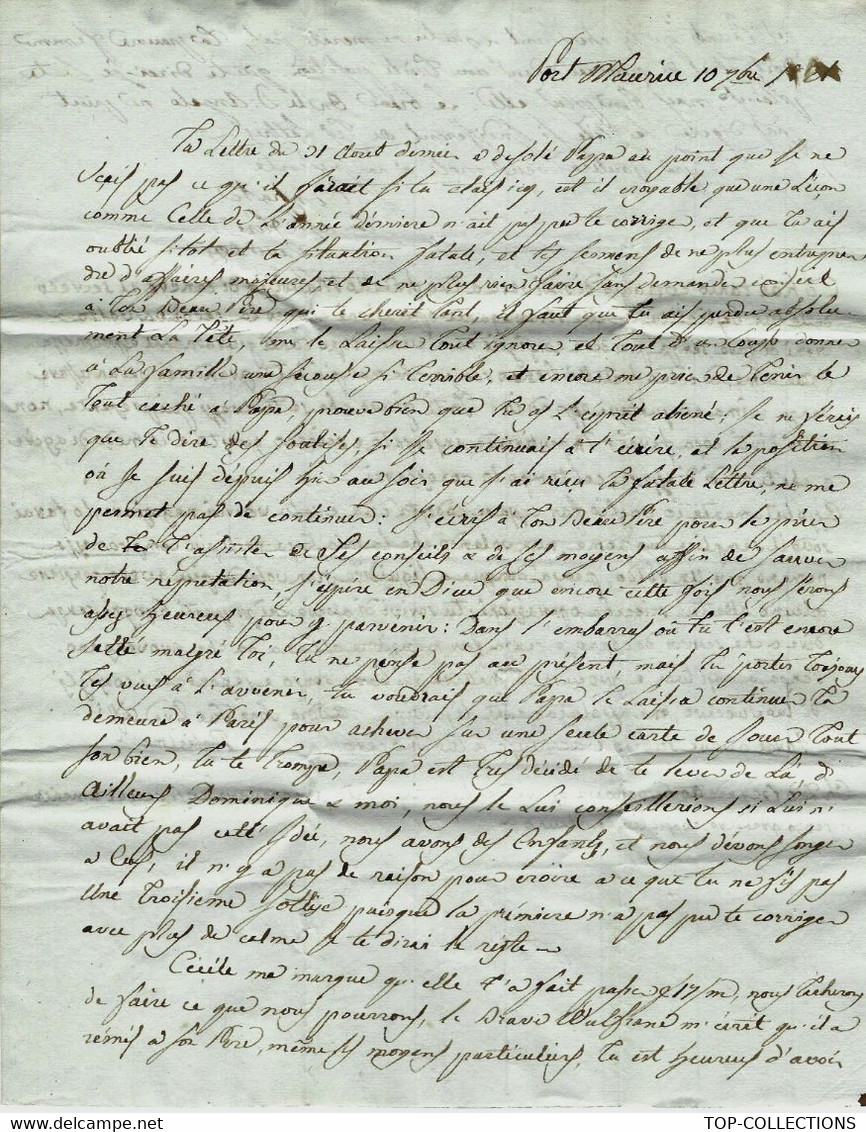 Port Maurice 10 7bre
Ta Lettre du 31 Aout dernier a desolé Papa au point que Je ne
Scais pas ce qu'il fairait si tu etais icy, est il croyable que une Leçon
comme Celle de L'année derniere n'ait pas pu te corriger, et que tu ais
oublié sitot et ta situation fatale, et tes sermens de ne plus entrepren
dre d'affaires majeures et de ne plus rien faire sans demander conseil
à Ton Beau Pere qui te cheret tant, il faut que tu ais perdu absolu
ment La Tête, me le Laisser Tout ignorer, et Tout d'un Coup donner
à La famille une secousse si Terrible, et encore me prier de Tenir le
Tout caché à Papa, prouve bien que tu as L'esprit aliené; Je ne sérais
que Te dire des sotises, si Je continuais à t'écrire, et la position
où Je suis depuis hier au soir que J'ai reçu ta fatale Lettre, ne me
permet pas de continuer: J'écris à Ton Beau Pere pour le prier
de T'assister de Ses conseils & de ses moyens affin de sauver
notre reputation, J'éspere en Dieu que encore cette fois nous sérons
assez heureux pour y parvenir: Dans l'embarras où tu t'est encore
jetté malgré Toi, Tu ne pense pas au présent, mais tu portes Toujours
Tes vues à L'avvenir, tu voudrais que Papa te Laissa continuer ta
demeure à Paris pour achever sur une seule carte de Jouer Tout
son bien, tu te Trompe, Papa est Tres décidé de te lever de Là, d'
Ailleurs Dominique & moi, nous le Lui conseillerions si Lui n'
avait pas cette Idée, nous avons des Enfants, et nous dévons songer
a Eux, il n'y a pas de raison pour croire a ce que tu ne fis pas
Une Troisieme Sottise puisque la prémiere n'a pas pu te corriger
avec plus de calme Je te dirai le reste
Cécile me marque qu'elle t'a fait passer 17/m, nous tacherons
de faire ce que nous pourrons, le Brave m'écrit qu'il a
rémis a son Pere, même ses moyens particuliers, Tu est heureux d'avoir
TOP-COLLECTIONS